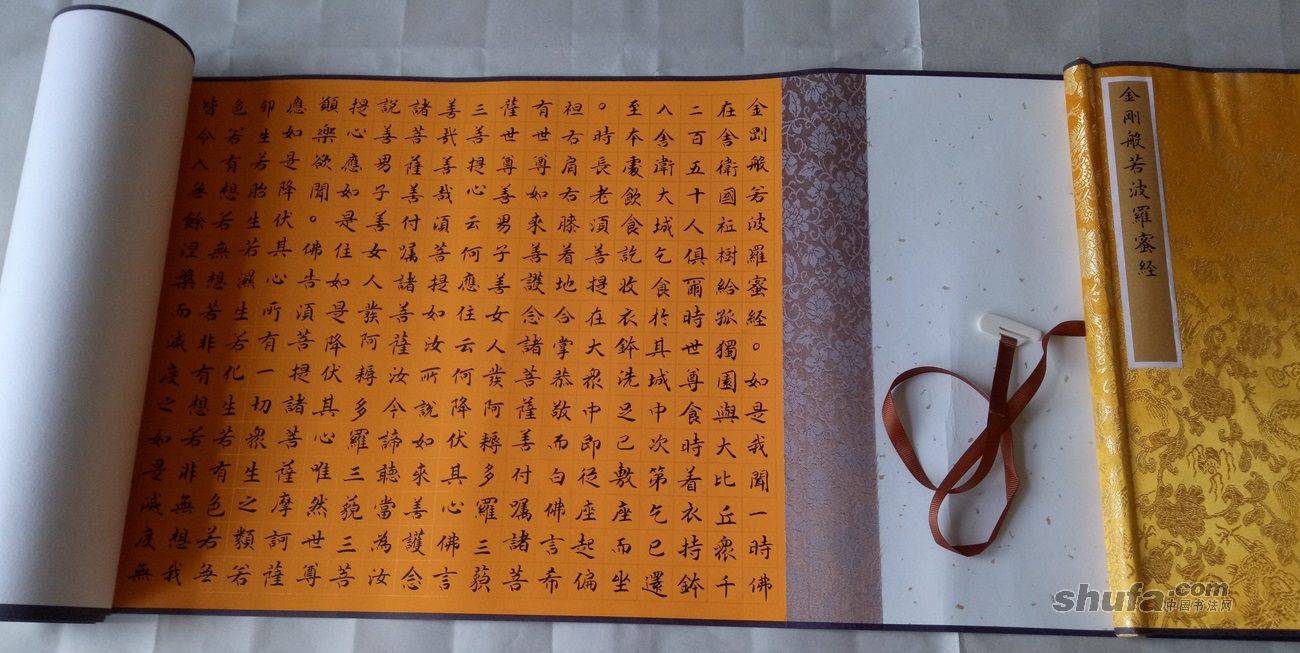 金剛般若波羅蜜经
金剛般若波羅蜜经。如是我聞一時佛
在舍衛國祇樹給孤獨園與大比丘眾千
二百五十人俱爾時世尊食時着衣持鉢
入舍衛大城乞食於其城中次第乞已還
至本處飲食訖收衣鉢洗足已敷座而坐
。時長老須菩提在大眾中即從座起偏
袒右肩右膝着地合掌恭敬而白佛言希
有世尊如來善護念諸菩薩善付囑諸菩
薩世尊善男子善女人發阿耨多羅三藐
三菩提心云何應住云何降伏其心佛言
善哉善哉須菩提如汝所說如來善護念
諸菩薩善付囑諸菩薩汝今諦聽當為汝
說善男子善女人發阿耨多羅三藐三菩
提心應如是住如是降伏其心唯然世尊
願樂欲聞。佛告須菩提諸菩薩摩訶薩
應如是降伏其心所有一切眾生之類若
卵生若胎生若濕生若化生若有色若無
色若有想若無想若非有想若非無想我
皆令入無餘涅槃而滅度之如是滅度無
shufa.com
中国书法网